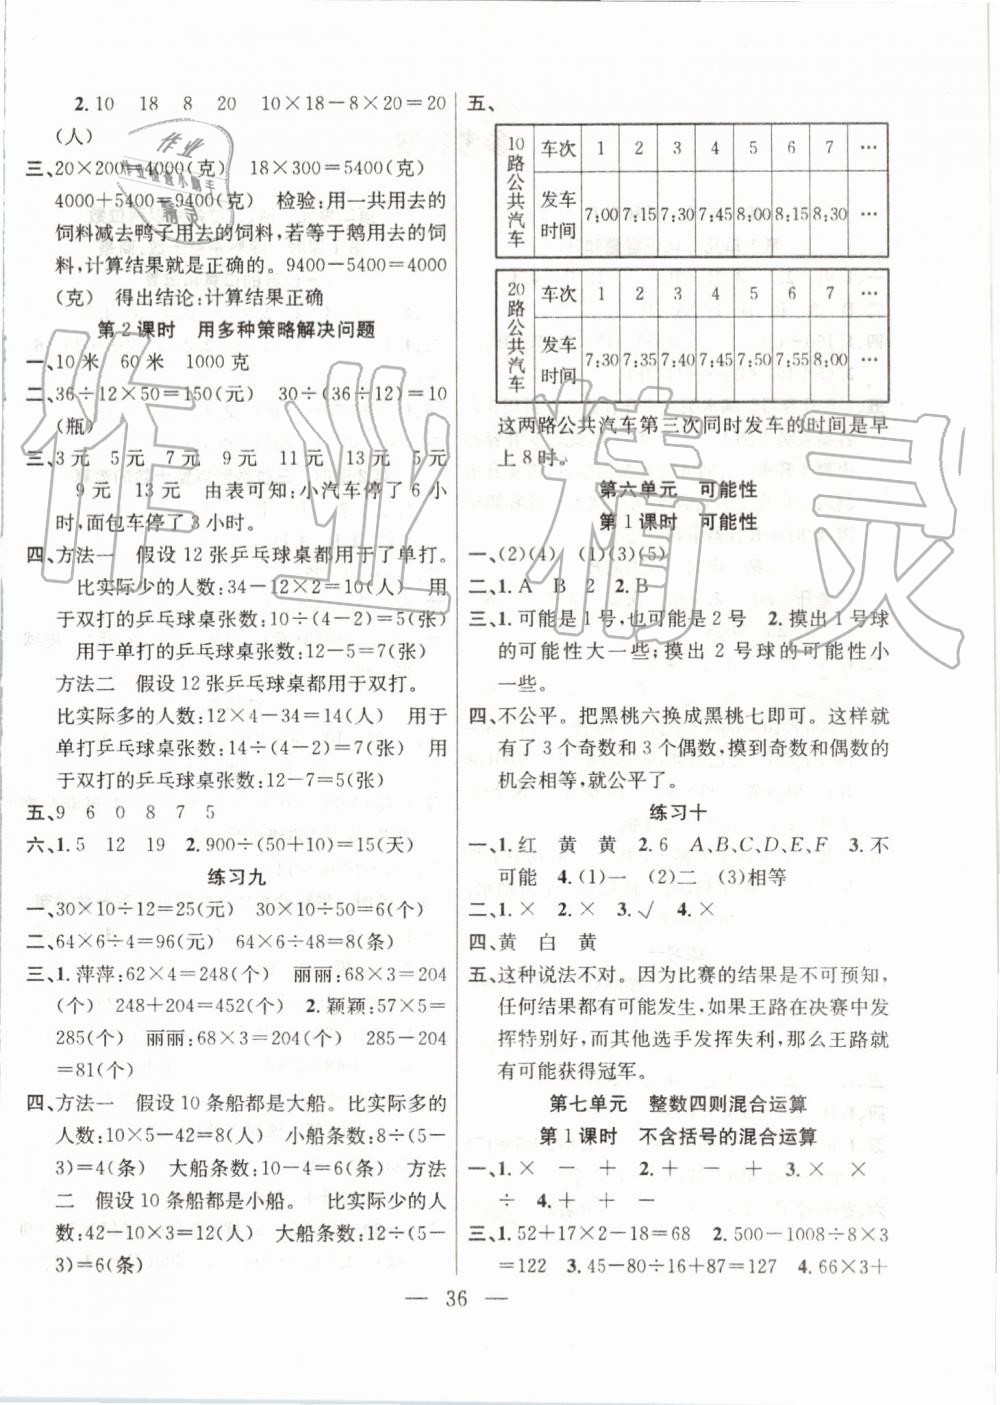 2.10　18　8　20　10×18－8×20＝20
(人)
三、20×200＝4000(克)　18×300＝5400(克)
4000＋5400＝9400(克)　检验:用一共用去的
饲料减去鸭子用去的饲料,若等于鹅用去的饲
料,计算结果就是正确的。9400－5400＝4000
(克)　得出结论:计算结果正确
第 2 课时　用多种策略解决问题
一、10 米　60 米　1000 克
二、36÷12×50＝150(元)　30÷(36÷12)＝10
(瓶)
三、3 元　5 元　7 元　9 元　11 元　13 元　5 元
9 元　13 元　由表可知:小汽车停了 6 小
时,面包车停了 3 小时。
四、方法一　假设 12 张乒乓球桌都用于了单打。
比实际少的人数:34－12×2＝10(人)　用
于双打的乒乓球桌张数:10÷(4－2)＝5(张)
用于单打的乒乓球桌张数:12－5＝7(张)
方法二　假设 12 张乒乓球桌都用于双打。
比实际多的人数:12×4－34＝14(人)　用于
单打乒乓球桌张数:14÷(4－2)＝7(张)　用
于双打的乒乓球桌张数:12－7＝5(张)
五、9　6　0　8　7　5
六、1.5　12　19　2.900÷(50＋10)＝15(天)
练习九
一、30×10÷12＝25(元)　30×10÷50＝6(个)
二、64×6÷4＝96(元)　64×6÷48＝8(条)
三、1.萍萍:62×4＝248(个)　丽丽:68×3＝204
(个)　248＋204＝452(个)　2.颖颖:57×5＝
285(个)　丽丽:68×3＝204(个)　285－204
＝81(个)
四、方法一　假设 10 条船都是大船。比实际多的
人数:10×5－42＝8(人)　小船条数:8÷(5－
3)＝4(条)　大船条数:10－4＝6(条)　方法
二　假设 10 条船都是小船。　比实际少的人
数:42－10×3＝12(人)　大船条数:12÷(5－
3)＝6(条)
五、
10路公共汽车　车次　1　2　3　4　5　6　7　…
发车时间　7:00　7:15　7:30　7:45　8:00　8:15　8:30　…
20路公共汽车　车次　1　2　3　4　5　6　7　…
发车时间　7:30　7:35　7:40　7:45　7:50　7:55　8:00　…
这两路公共汽车第三次同时发车的时间是早
上 8 时。
第六单元　可能性
第 1 课时　可能性
一、(2)(4)　(1)(3)(5)
二、1.A　B　2　2.B
三、1.可能是 1 号,也可能是 2 号　2.摸出 1 号球
的可能性大一些;摸出 2 号球的可能性小
一些。
四、不公平。把黑桃六换成黑桃七即可。这样就
有了 3 个奇数和 3 个偶数,摸到奇数和偶数的
机会相等,就公平了。
练习十
一、1.红　黄　黄　2.6　A、B、C、D、E、F　3.不
可能　4.(1)一　(2)二　(3)相等
二、1.×　2.×　3.√　4.×
四、黄　白　黄
五、这种说法不对。因为比赛的结果是不可预知,
任何结果都有可能发生,如果王路在决赛中发
挥特别好,而其他选手发挥失利,那么王路就
有可能获得冠军。
第七单元　整数四则混合运算
第 1 课时　不含括号的混合运算
一、1.×　－　＋　2.＋　－　＋　3.×　×
÷　4.＋　＋　－
三、1.52＋17×2－18＝68　2.500－1008÷8×3
＝122　3.45－80÷16＋87＝127　4.66×3＋
— 36 —
作业精灵